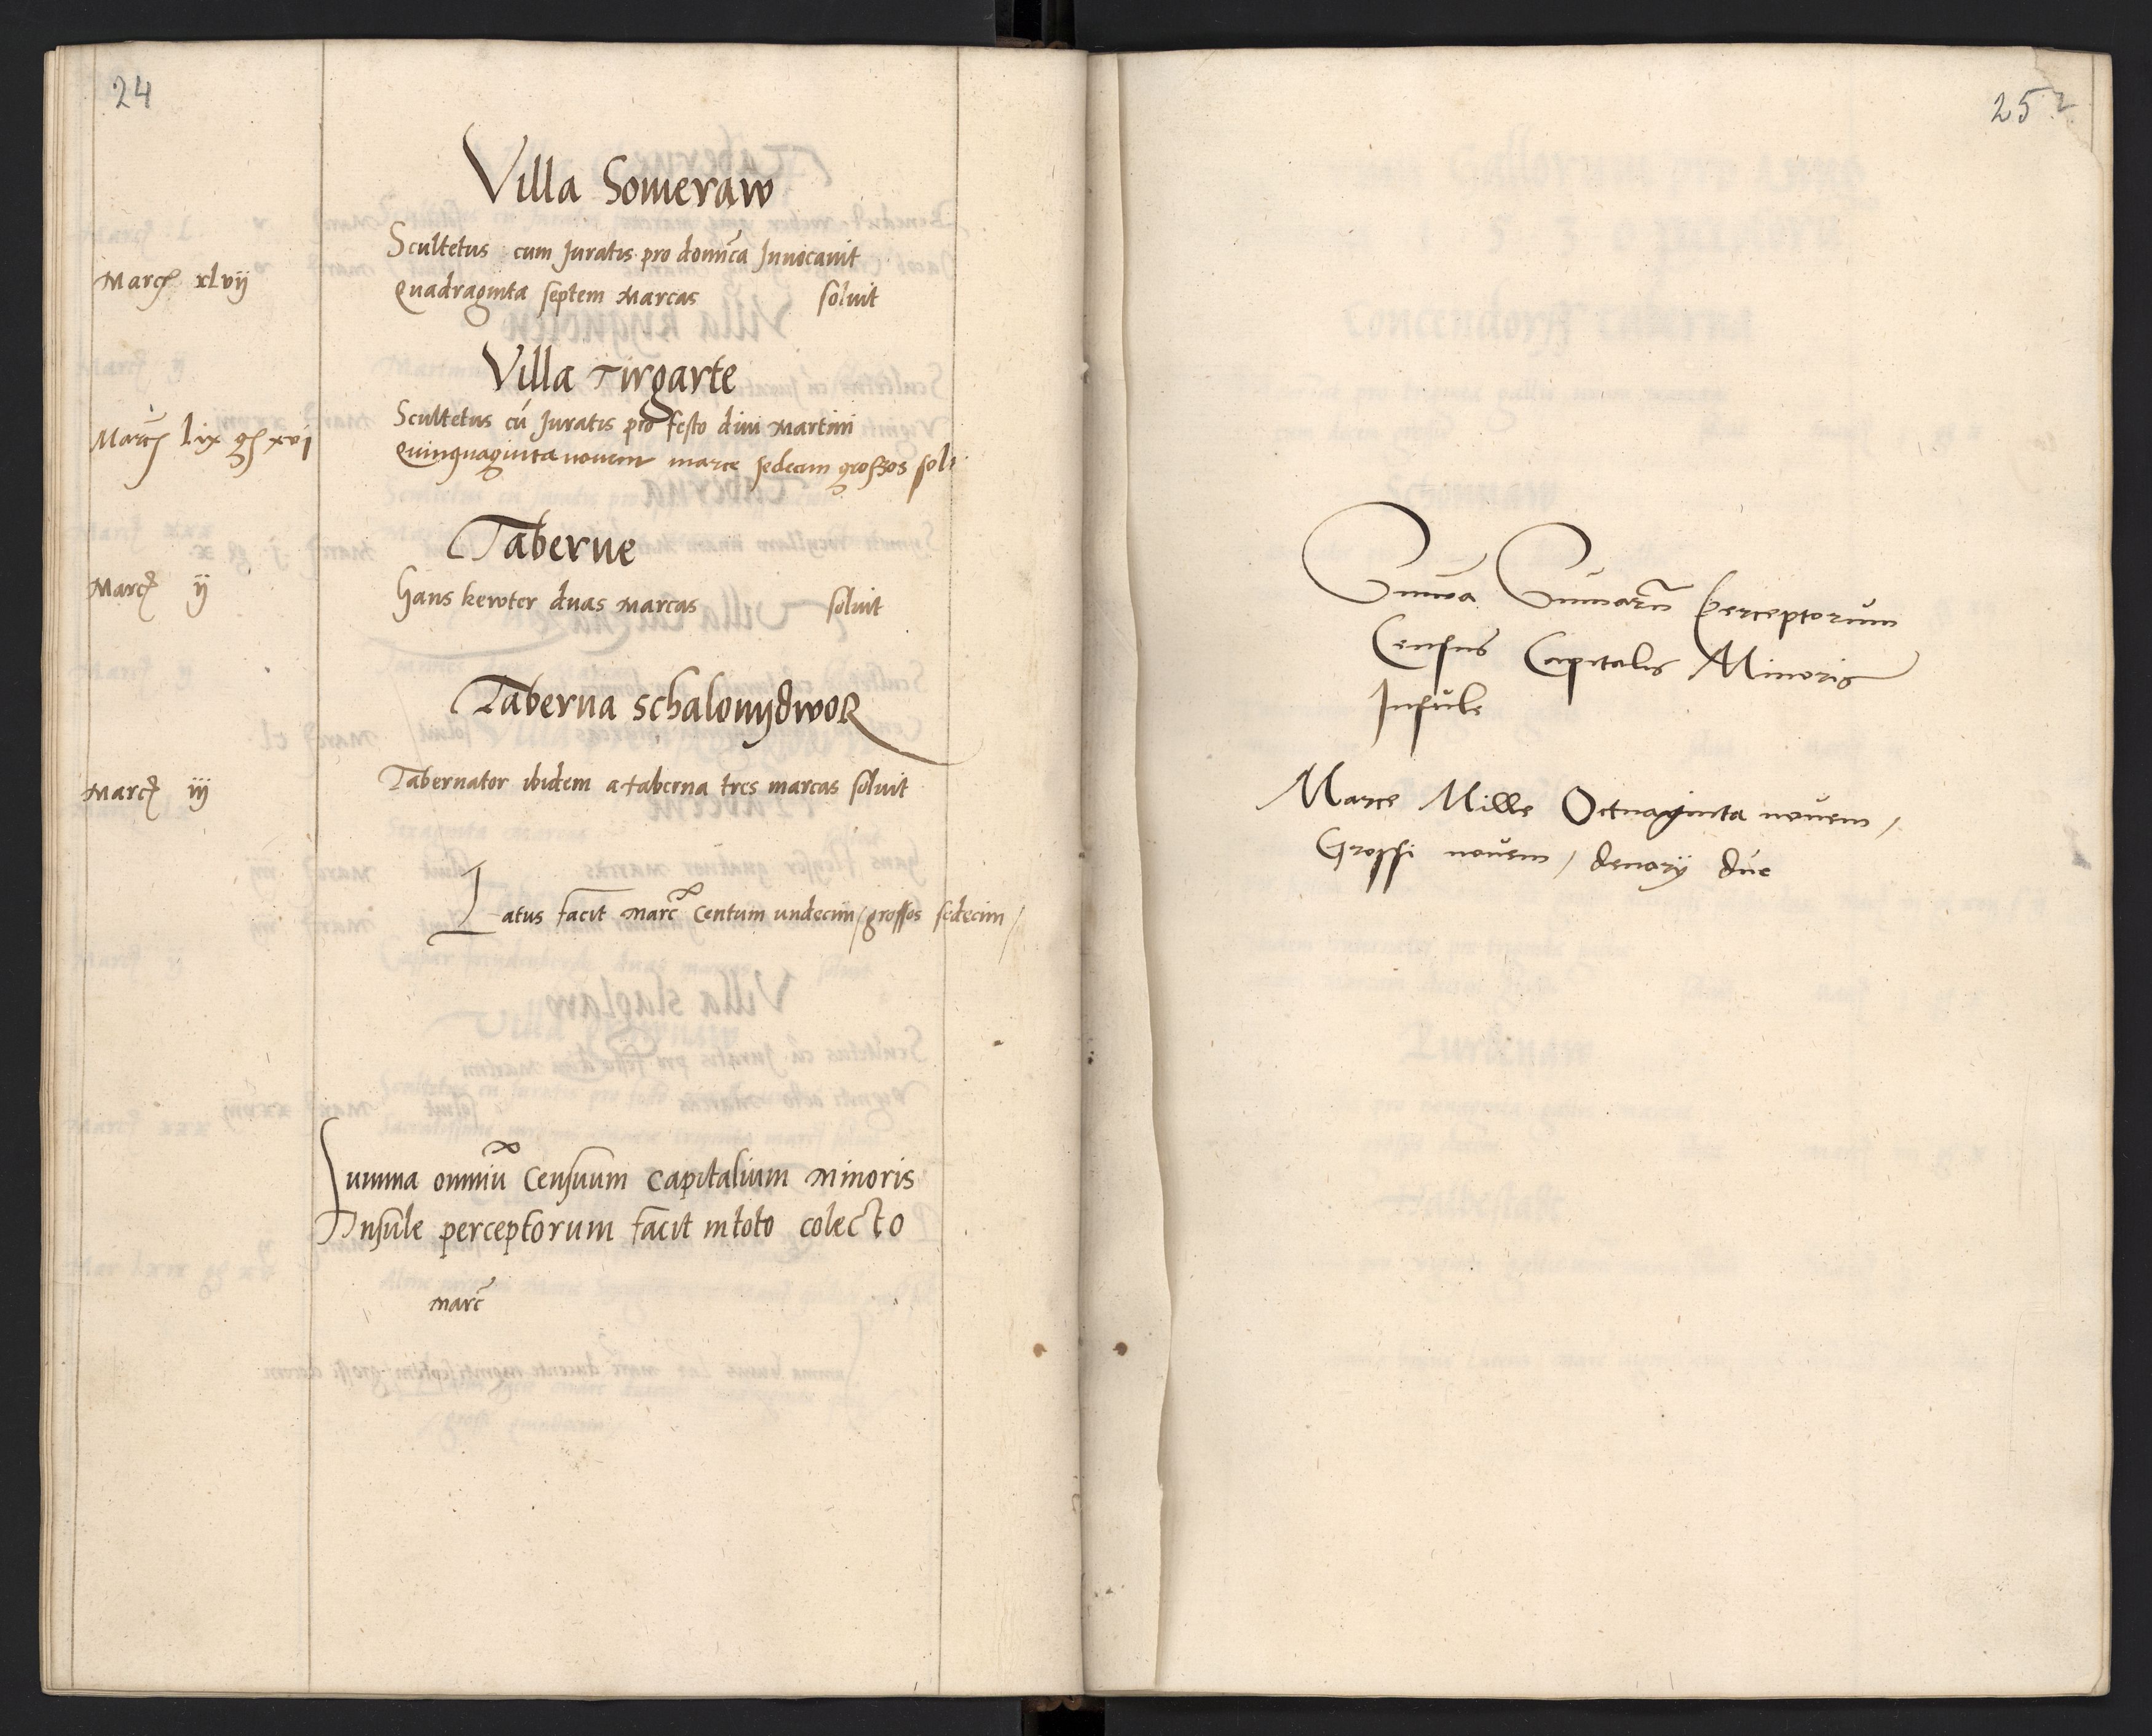 24
Villa Someraw
Scultetus cum Juratis pro domīca Juuocauit
Marcʒ xlvij Quadraginta septem Marcas soluit
Villa Tirgarte
Scultetus cū Juratis pro festo diui Martini
Marcʒ lix gʒ xvi Quinquaginta nouem marce sedecim grossos solu
Taberne
Marcʒ ij Hans kewter duas Marcas soluit
Taberna schalouijdwor
Marcʒ iij Tabernator ibidem a taberna tres marcas soluit
Latus facit Marc Centum undecim / grossos sedecim /
Summa omniū Censuum Capitalium Minoris
Insule perceptorum facit in toto colecto
marc
25
Suma Sumarū perceptorum
Census Capitalis Minoris
Insule
Marce Mille Octuaginta nouem /
Grossi nouem / denarij duc